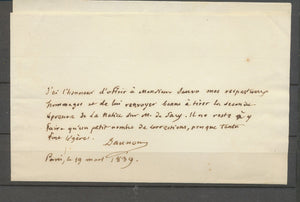 J'ai l'honneur d'offrir à Monsieur Sauvo mes respectueux
hommages et de lui renvoyer bonne à tirer la seconde
épreuve de la Notice sur M. de Sacy. Il ne reste à y
faire qu'un petit nombre de corrections, presque toutes
fort légères.
Daunou
Paris, le 19 mars 1839.